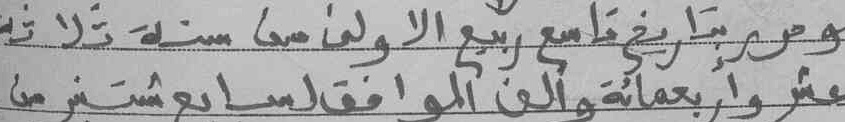 وحرر بتاريخ تاسع ربيع الاولى من سنة ثلاثة
عشر وأربعمائة والف الموافق لسابع شتنبر من